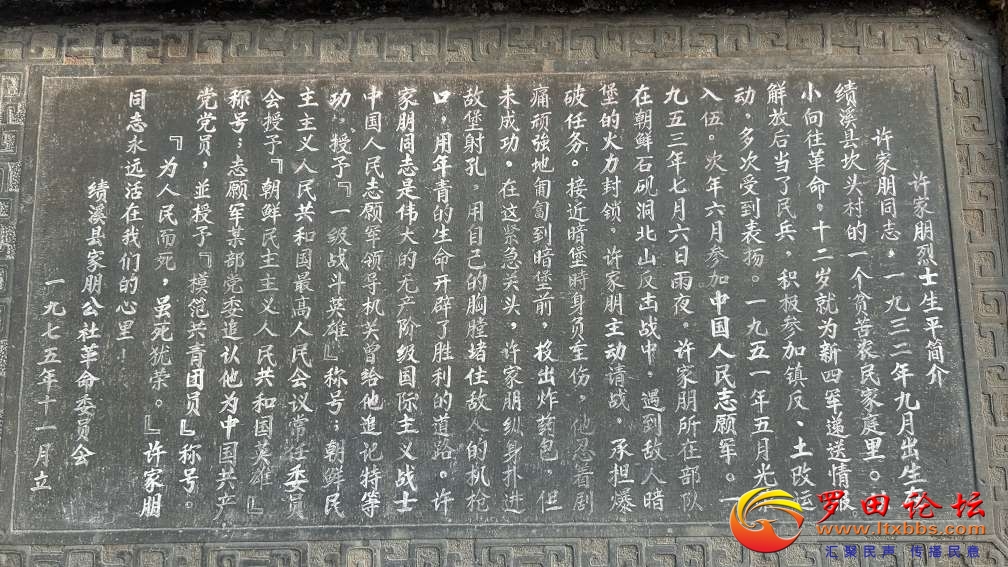 许家朋烈士生平简介
许家朋同志,一九三二年九月出生
绩溪县坎头村的一个贫苦农民家庭里。
小向往革命。十二岁就为新四军递送情
解放后当了民兵,积极参加镇反、土改运
动,多次受到表扬。一九五一年五月光
入伍。次年六月参加中国人民志愿军。一
九五三年七月六日雨夜,许家朋所在部队
在朝鲜石砚洞北山反击战中,遇到敌人暗
堡的火力封锁。许家朋主动请战,承担爆
破任务。接近暗堡时身负重伤,他忍着剧
痛顽强地匍匐到暗堡前,投出炸药包,但
未成功。在这紧急关头,许家朋纵身扑进
敌堡射孔。用自己的胸膛堵住敌人的机枪
口,用年青的生命开辟了胜利的道路。许
家朋同志是伟大的无产阶级国际主义战士
中国人民志愿军领导机关曾给他追记特等
功,授予『一级战斗英雄』称号;朝鲜民
主主义人民共和国最高人民会议常任委员
会授予『朝鲜民主主义人民共和国英雄』
称号;志愿军某部党委追认他为中国共产
党党员,並授予『模范共青团员』称号。
『为人民而死,虽死犹荣。』许家朋
同志永远活在我们的心里!
绩溪县家朋公社革命委员会
一九七五年十一月立
罗田论坛
www.ltxbbs.com
汇聚民声 传播民意